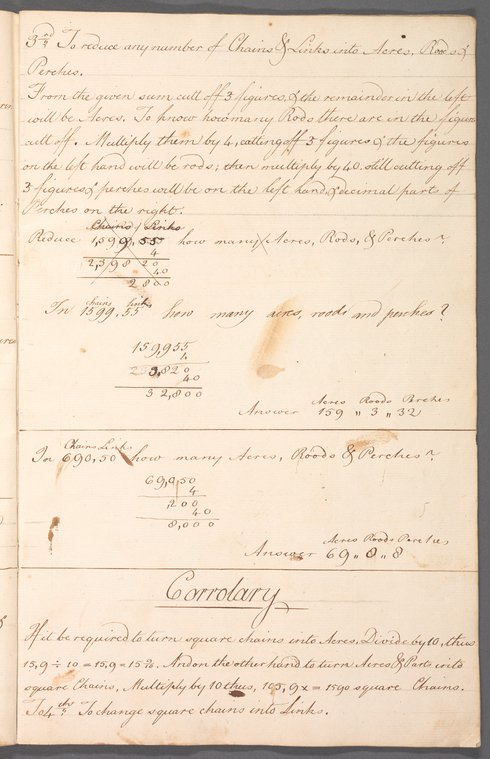 3rd To reduce any number of Chains & Links into Acres, Rods &
Perches.
From the given sum cutt off 3 figures, & the remainder in the left
will be Acres. To know how many Rods there are in the figures
cutt off. Multiply them by 4, cutting off 3 figures & the figures
on the left hand will be rods; then multiply by 40 still cutting off
3 figures, & perches will be on the left hand & decimal parts of
Perches on the right.
Chains / Links
Reduce 1599,55 how many Acres, Rods, & Perches?
4
2,398 20
40
2800
chains links
In 1599,55 how many acres, roods and perches?
159,955
3,820
40
32,800
Acres Roods Perches
Answer 159 " 3 " 32
Chains Links
In 690,50 how many Acres, Roods & Perches?
69,050
4
,200
40
8,000
Acres Roods Perches
Answer 69 " 0 " 8
Corrolary
If it be required to turn square chains into Acres. Divide by 10, thus
15,9 ÷ 10 = 15,9 = 15 9/10. And on the other hand to turn Acres & Parts into
square Chains, Multiply by 10 thus, 9 x = 1590 square Chains.
To 4th To change square chains into Links.